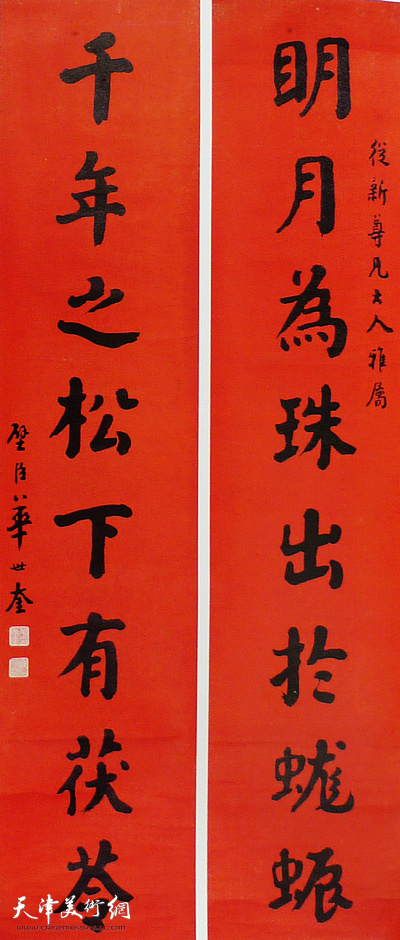 從新尊兄大人雅屬
明月為珠出於蛖蜄
千年之松下有茯苓
璧臣華世奎
天津美術網